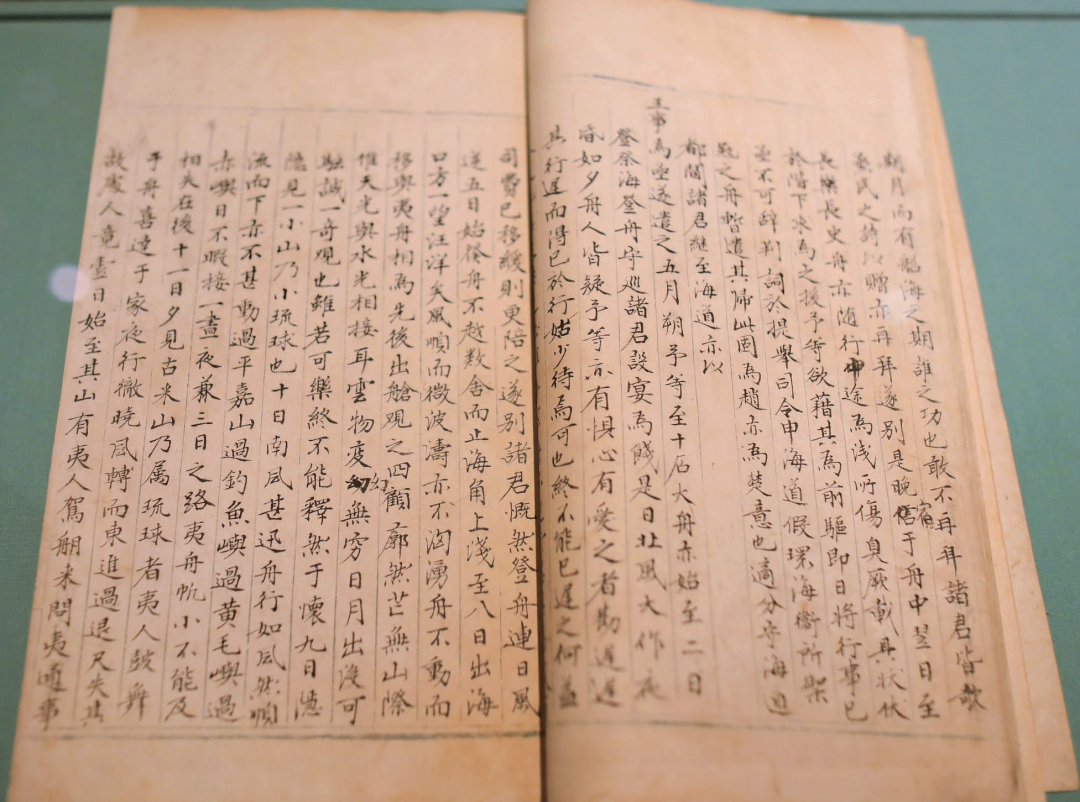 期月而有航海之期誰之功也敢不再拜諸君皆歌
烝民之詩以贈亦再拜遂別是晚宿于舟中翌日至
長樂長史舟亦随行中途為淺所傷臭厥載具狀伏
於階下求為之援予等欲藉其為前驅即日將行事已
亟不可辞判詞於提舉司令申海道假環海衛所架
艱之舟暫遣其歸此固為趙亦為楚意也適分守海道
都閫諸君継至海道亦以
王事為亟遂遣之五月朔予等至十石大舟亦始至二日
登祭海登舟守巡諸君設宴為餞是日北風大作夜
昏如夕舟人皆疑予等亦有惧心有愛之者勸遲遲
其行遲而得已於行姑少待焉可也終不能已遲之何益
司費已移緩則更陪之遂別諸君慨然登舟連日風
逆五日始發舟不越数舍而止海角上淺至八日出海
口方一望汪洋矣風順而微波濤亦不洶湧舟不動而
移與夷舟相為先後出艙觀之四顧廓然茫無山際
惟天光與水光相接耳雲物变幻無窮日月出没可
駭誠一奇觀也雖若可樂終不能釋然于懷九日隱
隱見一小山乃小琉球也十日南風甚迅舟行如飛然順
流而下亦不甚動過平嘉山過釣魚嶼過黄毛嶼過
赤嶼目不暇接一晝夜兼三日之路夷舟帆小不能及
相失在後十一日夕見古米山乃属琉球者夷人鼓舞
于舟喜達于家夜行徹曉風轉而東進過退尺失其
故處人竟壹日始至其山有夷人駕船来問夷通事